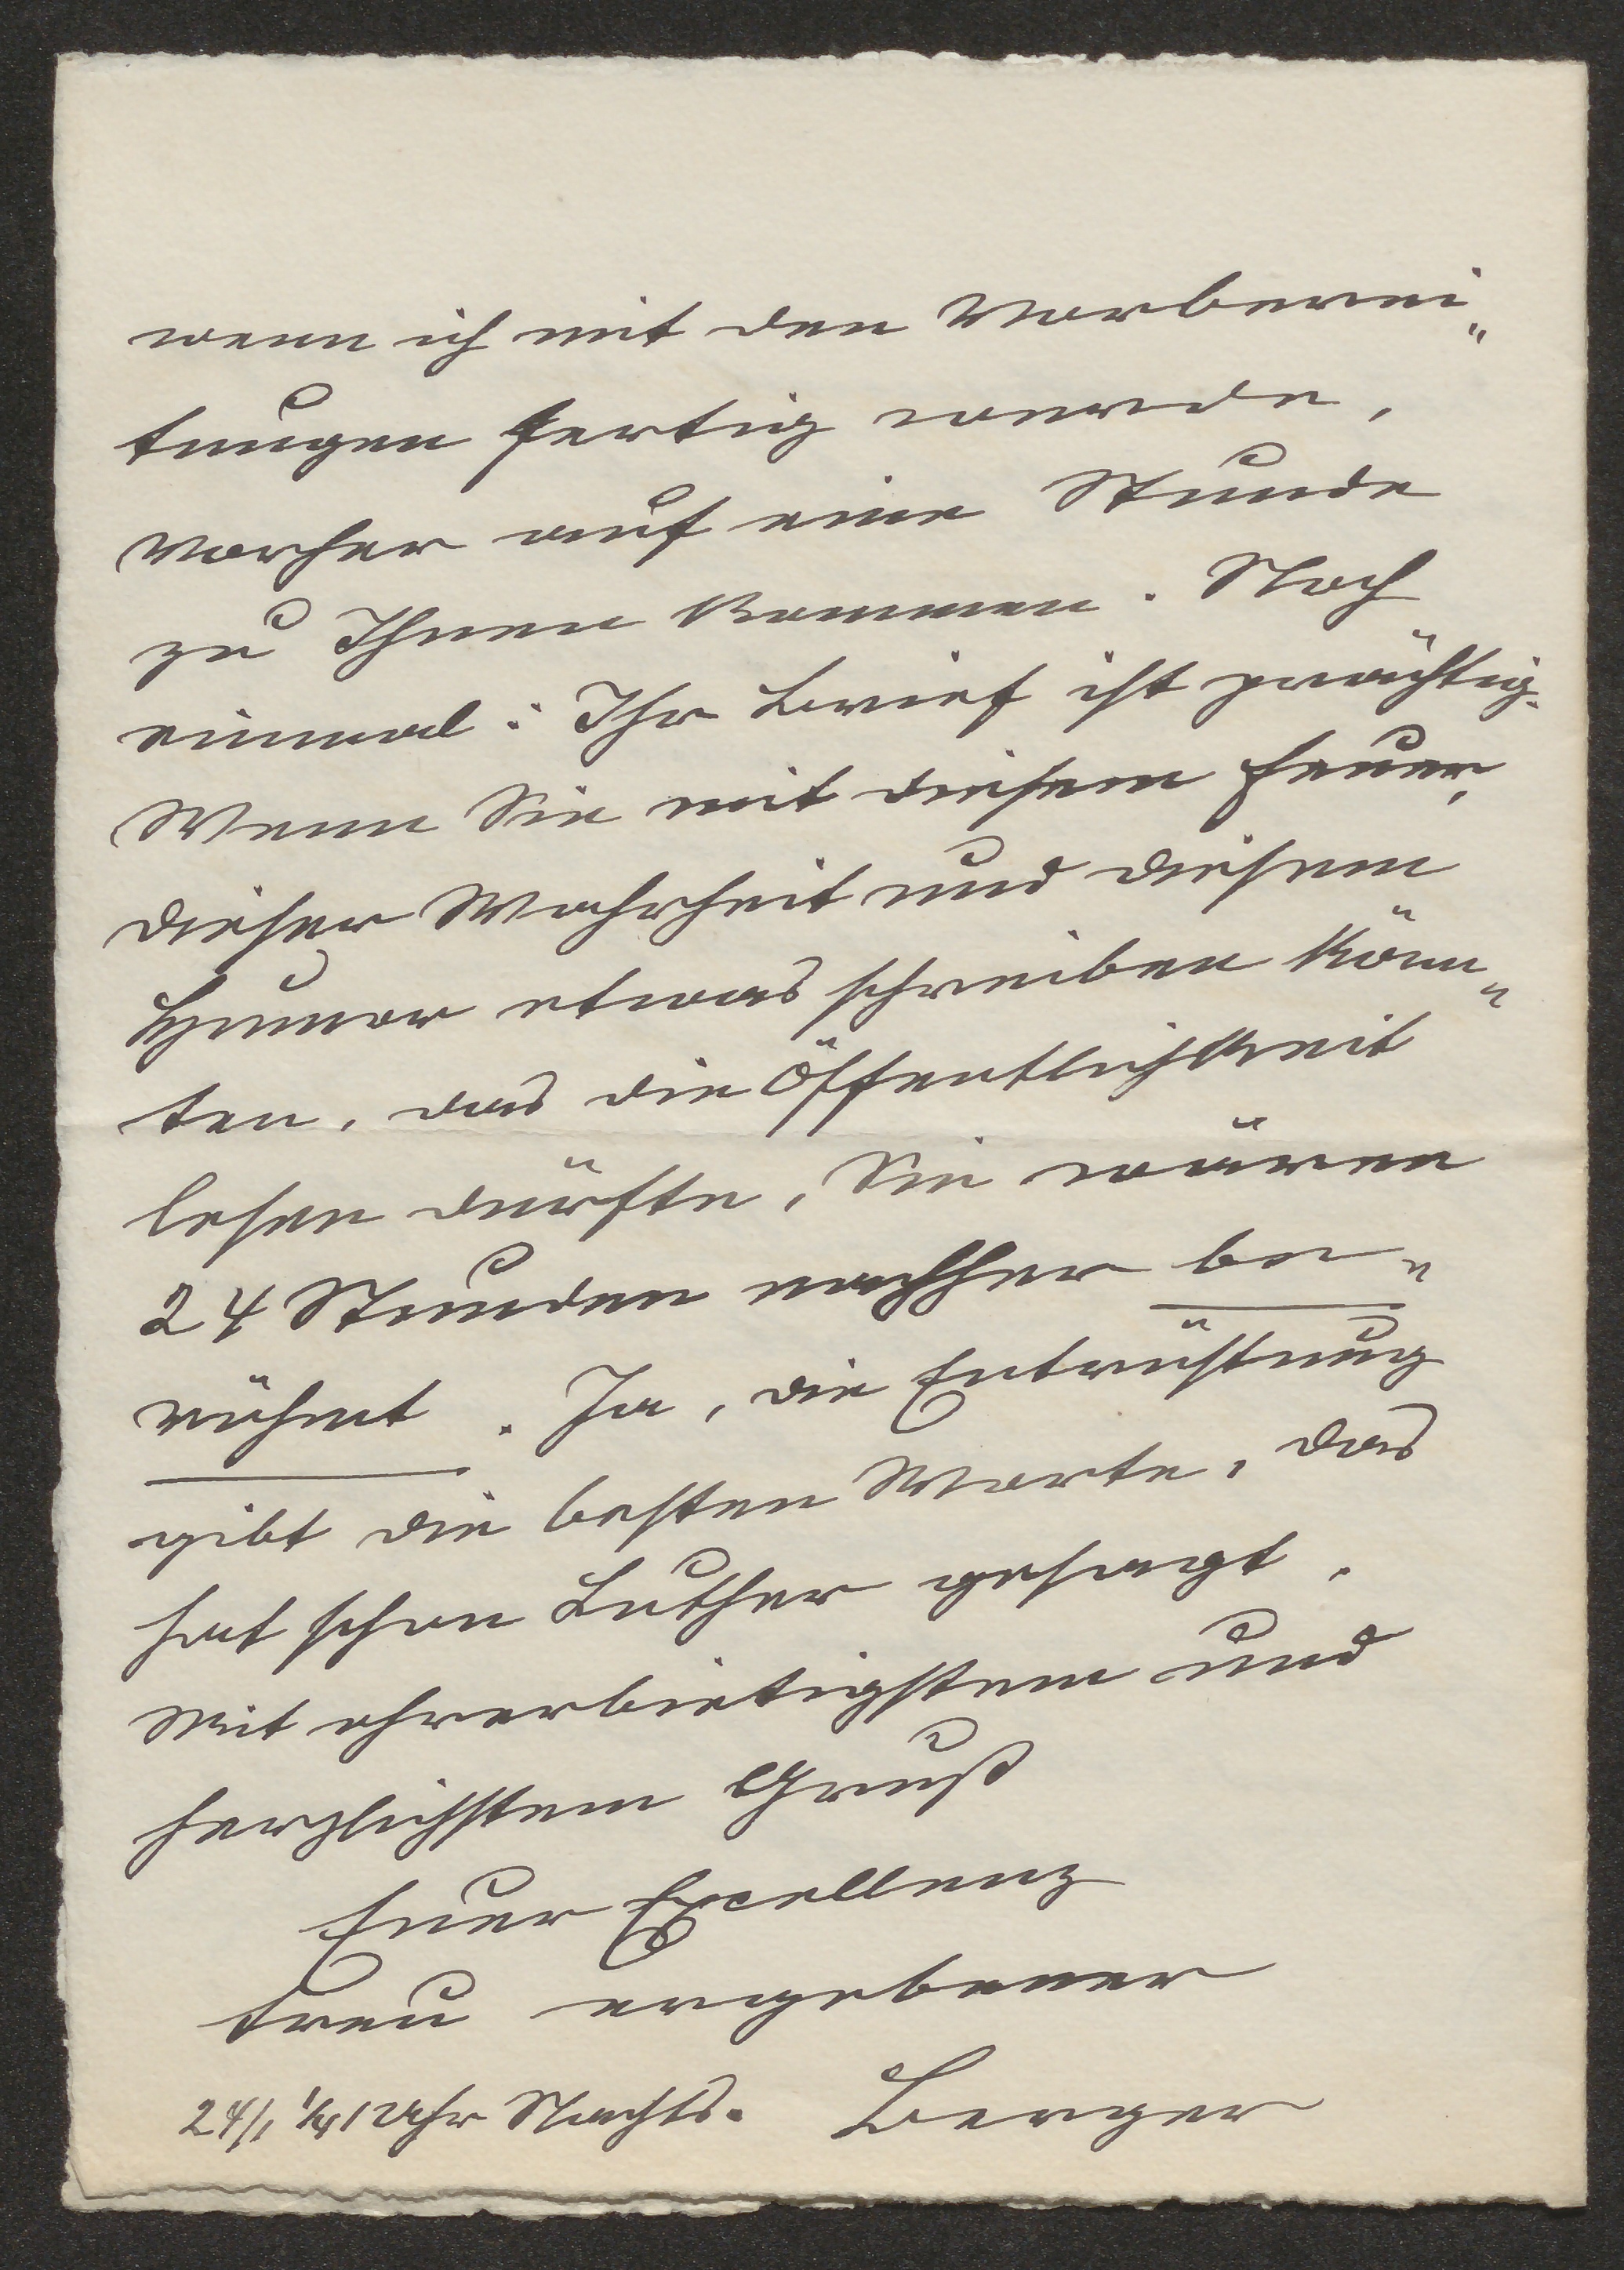 wenn ich mit den Vorberei„
tungen fertig werde,
vorher auf eine Stunde
zu Ihnen kommen. Noch
einmal: Ihr Brief ist prächtig.
Wenn Sie mit diesem Feuer,
dieser Wahrheit und diesem
Humor etwas schreiben könn„
ten, das die Öffentlichkeit
lesen dürfte, Sie wären
24 Stunden nachher be„
rühmt. Ja, die Entrüstung
gibt die besten Worte, das
hat schon Luther gesagt.
Mit ehrerbietigstem und
herzlichstem Gruß
Euer Excellenz
treu ergebener
24/1 Uhr Nachts. Berger